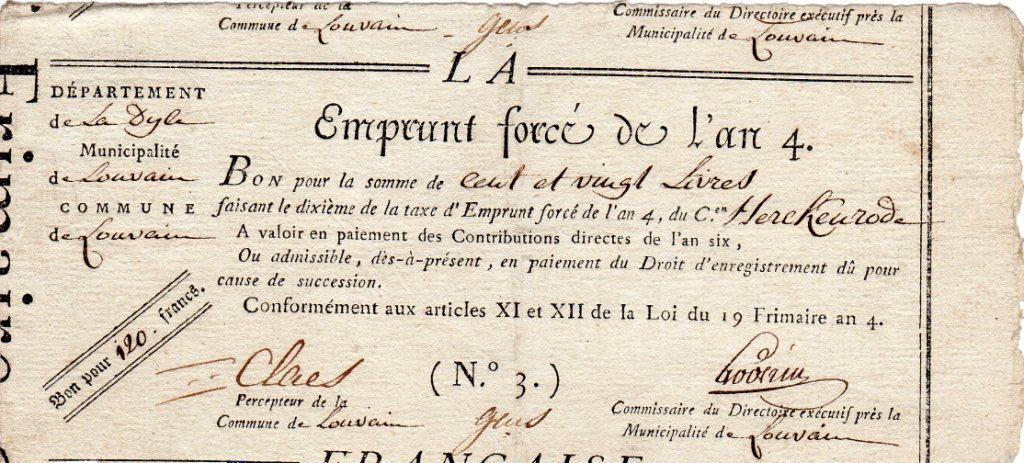 Percepteur de la
Commune de Louvain
Commissaire du Directoire exécutif près la
Municipalité de Louvain
L A
DÉPARTEMENT
de La Dyle
Municipalité
de Louvain
COMMUNE
de Louvain
Emprunt forcé de l'an 4.
BON pour la somme de cent et vingt Livres
faisant le dixième de la taxe d'Emprunt forcé de l'an 4, du C.en Herckenrode
A valoir en paiement des Contributions directes de l'an six,
Ou admissible, dès-à-présent, en paiement du Droit d'enregistrement dû pour
cause de succession.
Conformément aux articles XI et XII de la Loi du 19 Frimaire an 4.
Bon pour 120. francs.
Claes
(N.º 3.)
Percepteur de la
Commune de Louvain
Commissaire du Directoire exécutif près la
Municipalité de Louvain
FRANÇAISE